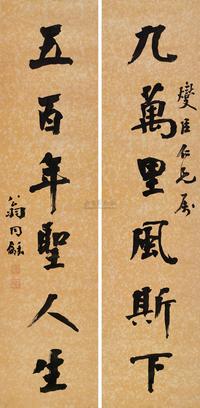 九萬里風斯下
燮臣仁兄屬
五百年聖人生
翁同龢